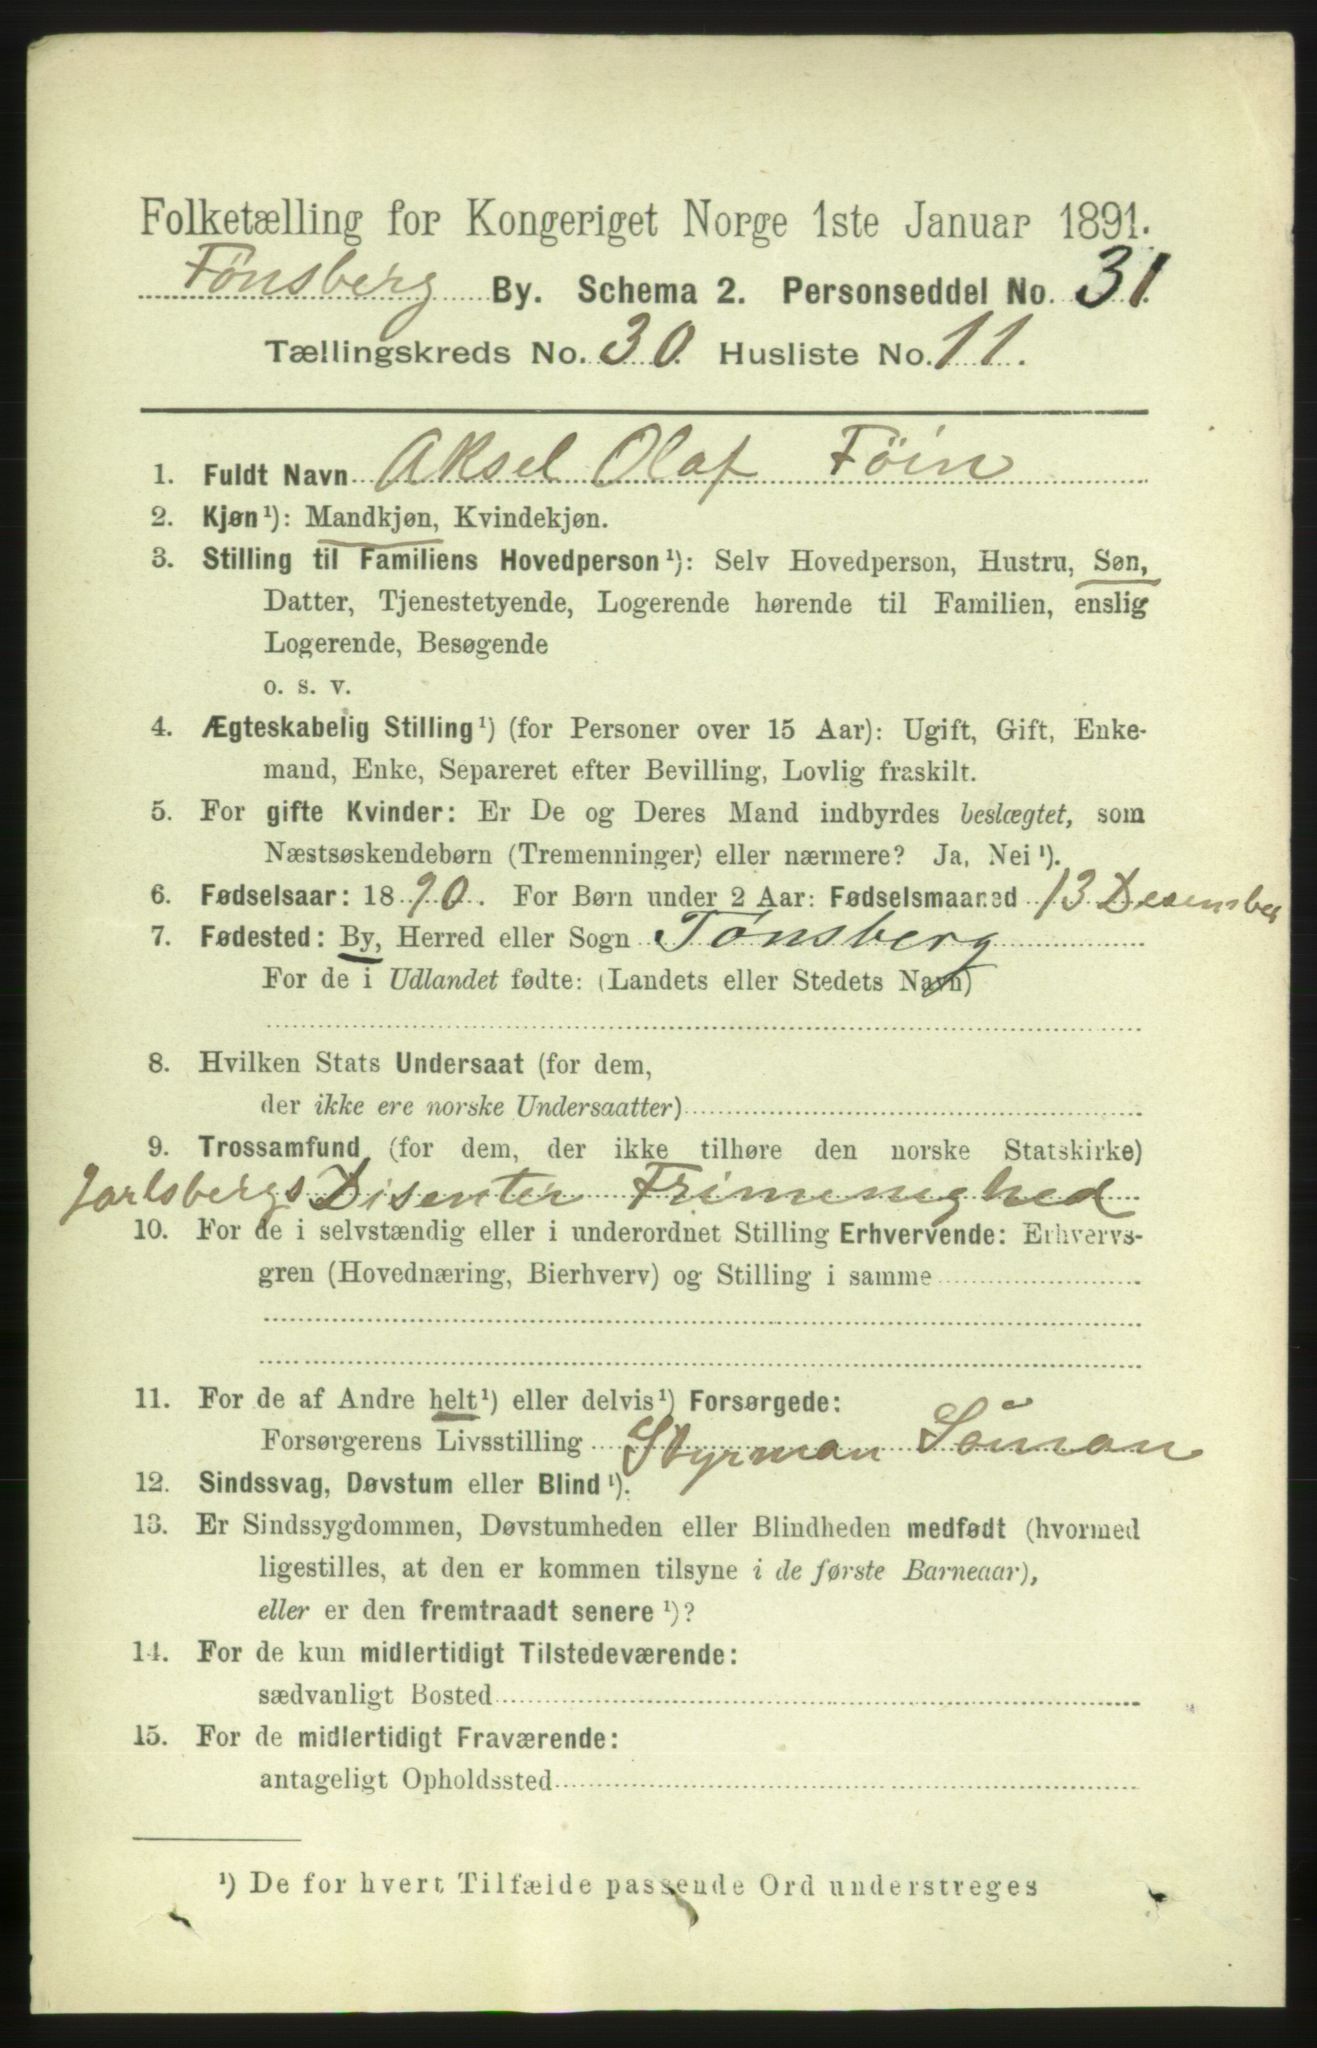 Folketælling for Kongeriget Norge 1ste Januar 1891.
Tønsberg By. Schema 2. Personseddel No. 31.
Tællingskreds No. 30. Husliste No. 11.
1. Fuldt Navn Aksel Olaf Föin
2. Kjøn¹): Mandkjøn, Kvindekjøn.
3. Stilling til Familiens Hovedperson¹): Selv Hovedperson, Hustru, Søn,
Datter, Tjenestetyende, Logerende hørende til Familien, enslig
Logerende, Besøgende
o. s. v.
4. Ægteskabelig Stilling¹) (for Personer over 15 Aar): Ugift, Gift, Enke-
mand, Enke, Separeret efter Bevilling, Lovlig fraskilt.
5. For gifte Kvinder: Er De og Deres Mand indbyrdes beslægtet, som
Næstsøskendebørn (Tremenninger) eller nærmere? Ja, Nei¹).
6. Fødselsaar: 1890. For Børn under 2 Aar: Fødselsmaaned 13 Desember
7. Fødested: By, Herred eller Sogn Tønsberg
For de i Udlandet fødte: (Landets eller Stedets Navn)
8. Hvilken Stats Undersaat (for dem,
der ikke ere norske Undersaatter)
9. Trossamfund (for dem, der ikke tilhøre den norske Statskirke)
Jarlsbergs Disenter Frimenighed
10. For de i selvstændig eller i underordnet Stilling Erhvervende: Erhvervs-
gren (Hovednæring, Bierhverv) og Stilling i samme
11. For de af Andre helt¹) eller delvis¹) Forsørgede:
Forsørgerens Livsstilling Styrman Söman
12. Sindssvag, Døvstum eller Blind¹).
13. Er Sindssygdommen, Døvstumheden eller Blindheden medfødt (hvormed
ligestilles, at den er kommen tilsyne i de første Barneaar),
eller er den fremtraadt senere¹)?
14. For de kun midlertidigt Tilstedeværende:
sædvanligt Bosted
15. For de midlertidigt Fraværende:
antageligt Opholdssted
¹) De for hvert Tilfælde passende Ord understreges